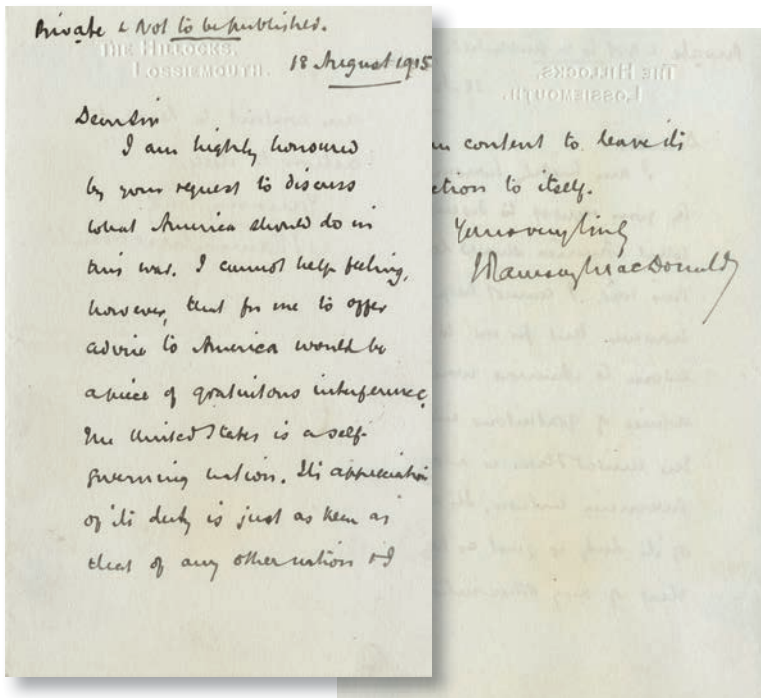 Private & Not to be published.
THE HILLOCKS,
LOSSIEMOUTH.
18 August 1915
Dear Sir
I am highly honoured
by your request to discuss
what America should do in
this war. I cannot help feeling,
however, that for me to offer
advice to America would be
a piece of gratuitous interference.
The United States is a self-
governing nation. Its appreciation
of its duty is just as keen as
that of any other nation & I
content to leave its
to itself.
Yours very
J Ramsay MacDonald
THE HILLOCKS,
LOSSIEMOUTH.